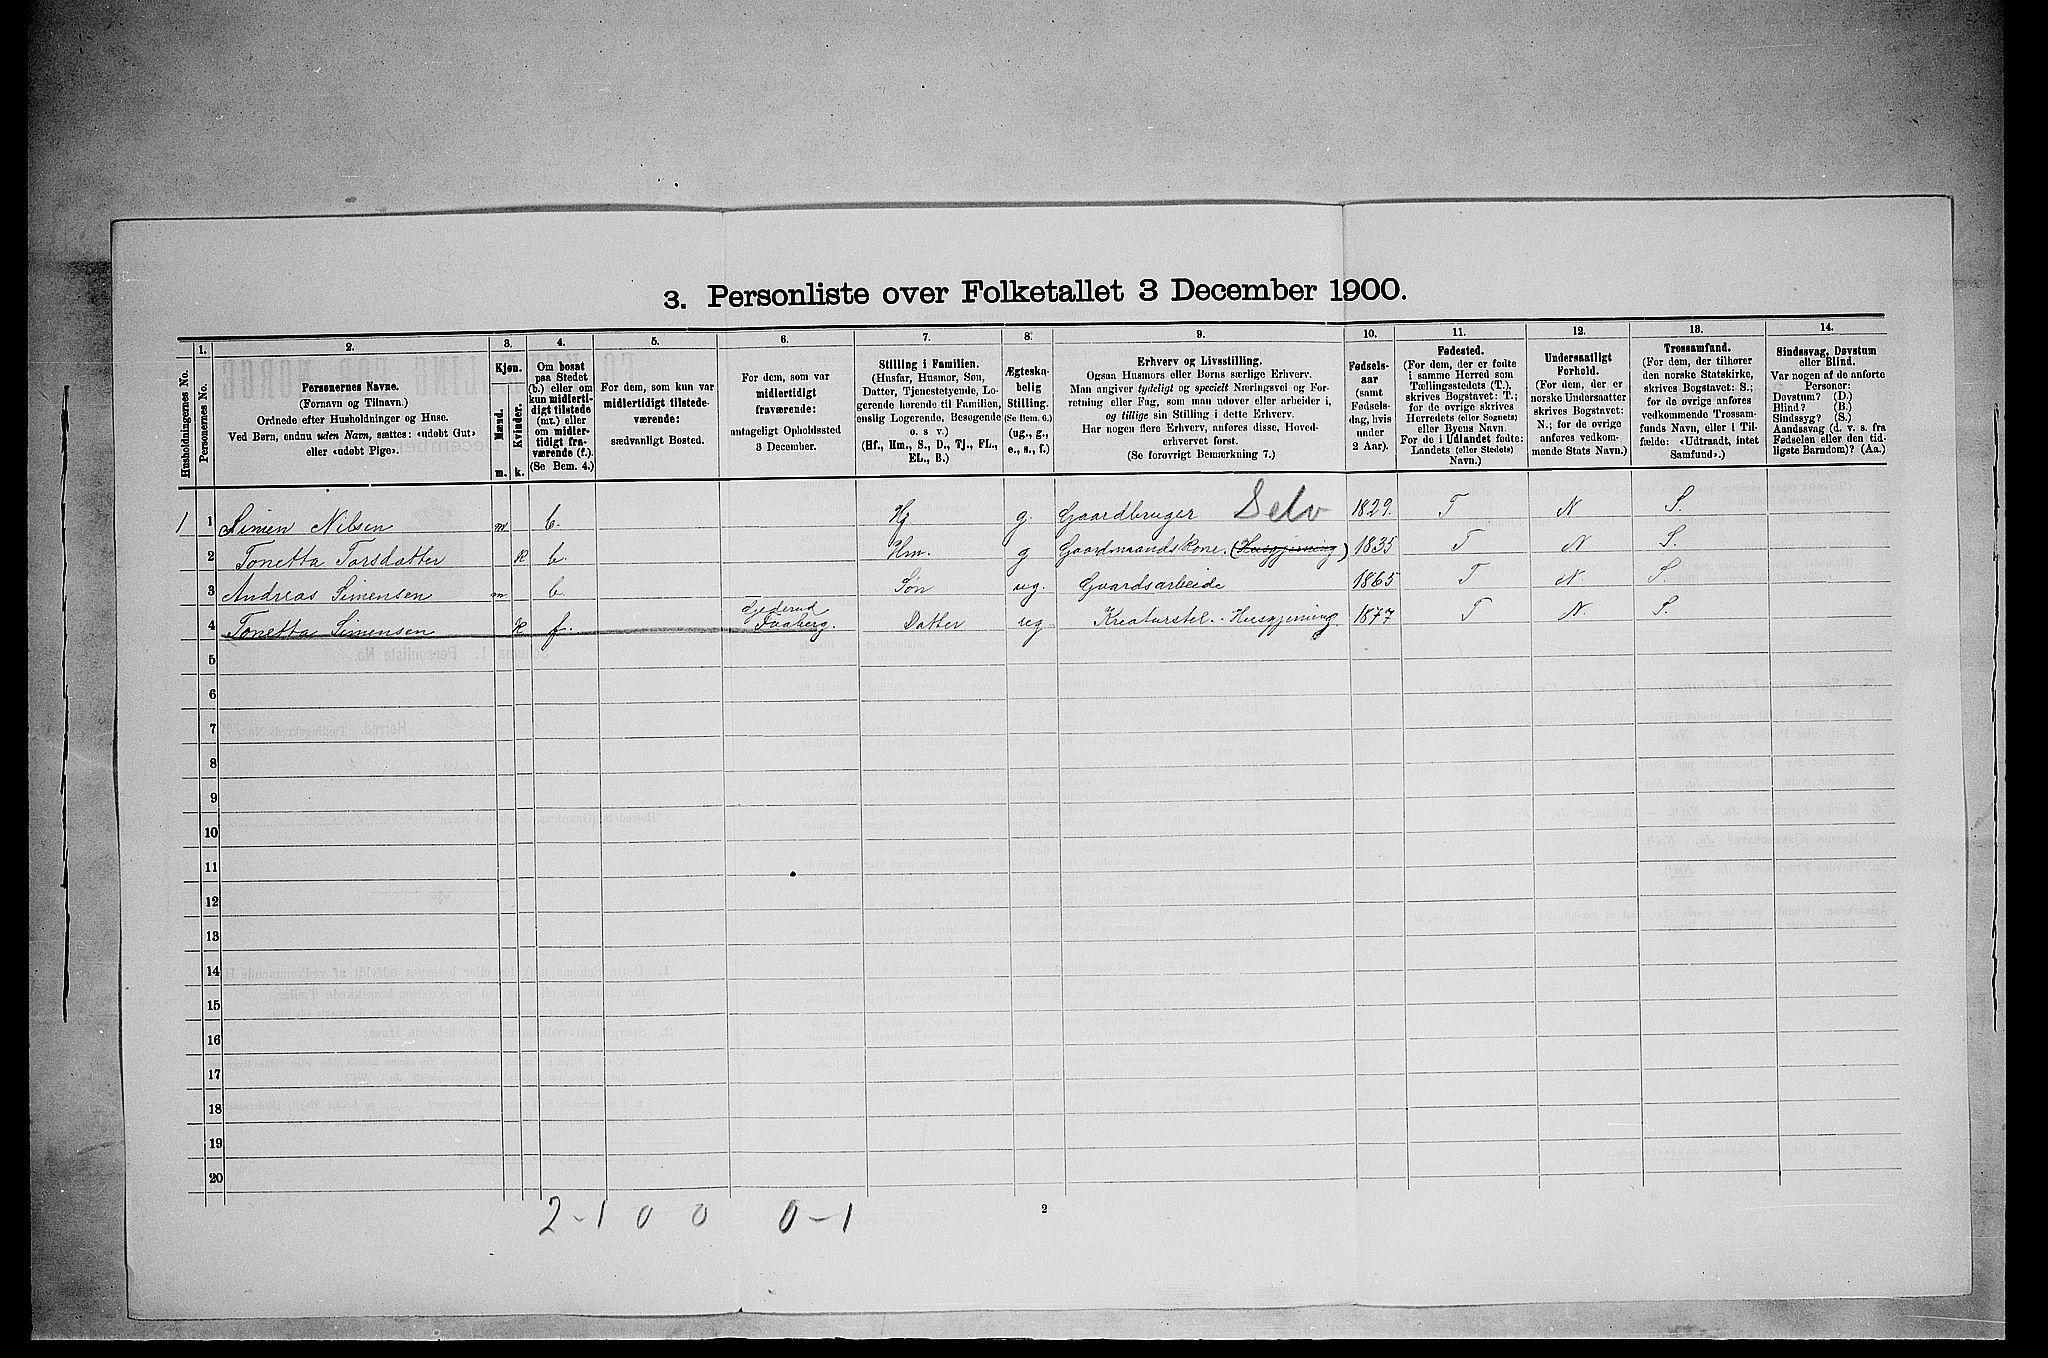 3. Personliste over Folketallet 3 December 1900.
1. 2. 3. 4. 5. 6. 7. 8. 9. 10. 11. 12. 13. 14.
Husholdningernes No.
Personernes No.
Personernes Navne.
(Fornavn og Tilnavn.)
Ordnede efter Husholdninger og Huse.
Ved Børn, endnu uden Navn, sættes: «udøbt Gut»
eller «udøbt Pige».
Kjøn.
Mænd.
Kvinder.
m. k.
Om bosat
paa Stedet
(b.) eller om
kun midlerti-
digt tilstede
(mt.) eller
om midler-
tidigt fra-
værende (f.).
(Se Bem. 4.)
For dem, som kun var
midlertidigt tilstede-
værende:
sædvanligt Bosted.
For dem, som var
midlertidigt
fraværende:
antageligt Opholdssted
3 December.
Stilling i Familien.
(Husfar, Husmor, Søn,
Datter, Tjenestetyende, Lo-
gerende hørende til Familien,
enslig Logerende, Besøgende
o. s v.)
(Hf., Hm., S., D., Tj., FL.,
EL., B.)
Ægteska-
belig
Stilling.
(Se Bem. 6.)
(ug., g.,
e., s., f.)
Erhverv og Livsstilling.
Ogsaa Husmors eller Børns særlige Erhverv.
Man angiver tydeligt og specielt Næringsvei og For-
retning eller Fag, som man udøver eller arbeider i,
og tillige sin Stilling i dette Erhverv.
Har nogen flere Erhverv, anføres disse, Hoved-
erhvervet først.
(Se forøvrigt Bemærkning 7.)
Fødsels-
aar
(samt
Fødsels-
dag, hvis
under
2 Aar).
Fødested.
(For dem, der er fødte
i samme Herred som
Tællingsstedets (T.),
skrives Bogstavet: T.;
for de øvrige skrives
Herredets (eller Sognets)
eller Byens Navn.
For de i Udlandet fødte:
Landets (eller Stedets)
Navn.)
Undersaatligt
Forhold.
(For dem, der er
norske Undersaatter
skrives Bogstavet:
N.; for de øvrige
anføres vedkom-
mende Stats Navn.)
Trossamfund.
(For dem, der tilhører
den norske Statskirke,
skrives Bogstavet: S.;
for de øvrige anføres
vedkommende Trossam-
funds Navn, eller i Til-
fælde: «Udtraadt, intet
Samfund».)
Sindssvag, Døvstum
eller Blind.
Var nogen af de anførte
Personer:
Døvstum? (D.)
Blind? (B.)
Sindssyg? (S.)
Aandssvag (d. v. s. fra
Fødselen eller den tid-
ligste Barndom)? (Aa.)
1 1 Simen Nilsen m b. Hf g. Gaardbruger Selv 1829. T N S.
2 Tonetta Torsdatter k b. Hm. g Gaardmandskone. (Husgjerning) 1835 T N S.
3 Andreas Simensen m b. Søn ug. Gaardsarbeide 1865 T N. S.
4 Tonetta Simensen k f. Faaberg. Datter ug Kreaturstel. Husgjerning. 1877 T N S.
5
6
7
8
9
10
11
12
13
14
15
16
17
18
19
20
2-1 0 0 0-1
2